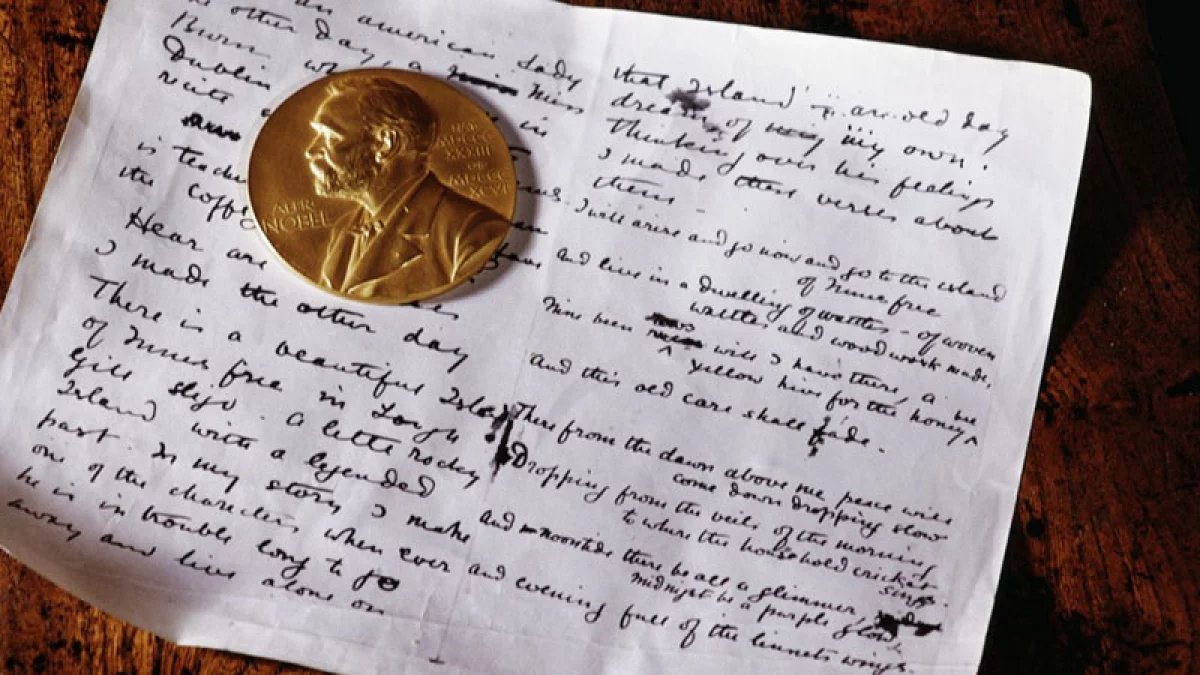 an american Lady
the other day, a Miss
Born
Dublin
recite
in
is teach
the Coffe
Hear are
I made the other day
There is a beautiful Isla
of Innis free in Lough
Gill Sligo. a little rocky
Island with a legended
past. In my story I make
one of the characters when ever
he is in trouble long to go
away and live alone on
ALFR.
NOBEL
NAT.
MDCCC
XXXIII
OB.
MDCCC
XCVI
that Island – an old day
dream of my own.
Thinking over his feelings
I made these verses about
them –
I will arise and go now and go to the island
of Innis free
and live in a dwelling of wattles – of woven
wattles and wood work made,
Nine bean will I have there, a
yellow hive for the honey
And this old care shall fade.
There from the dawn above me peace will
come down dropping slow
Dropping from the veils of the morning
to where the household cricket
sings.
And noontide there be all a glimmer,
midnight be a purple glow
and evening full of the linnets wings.